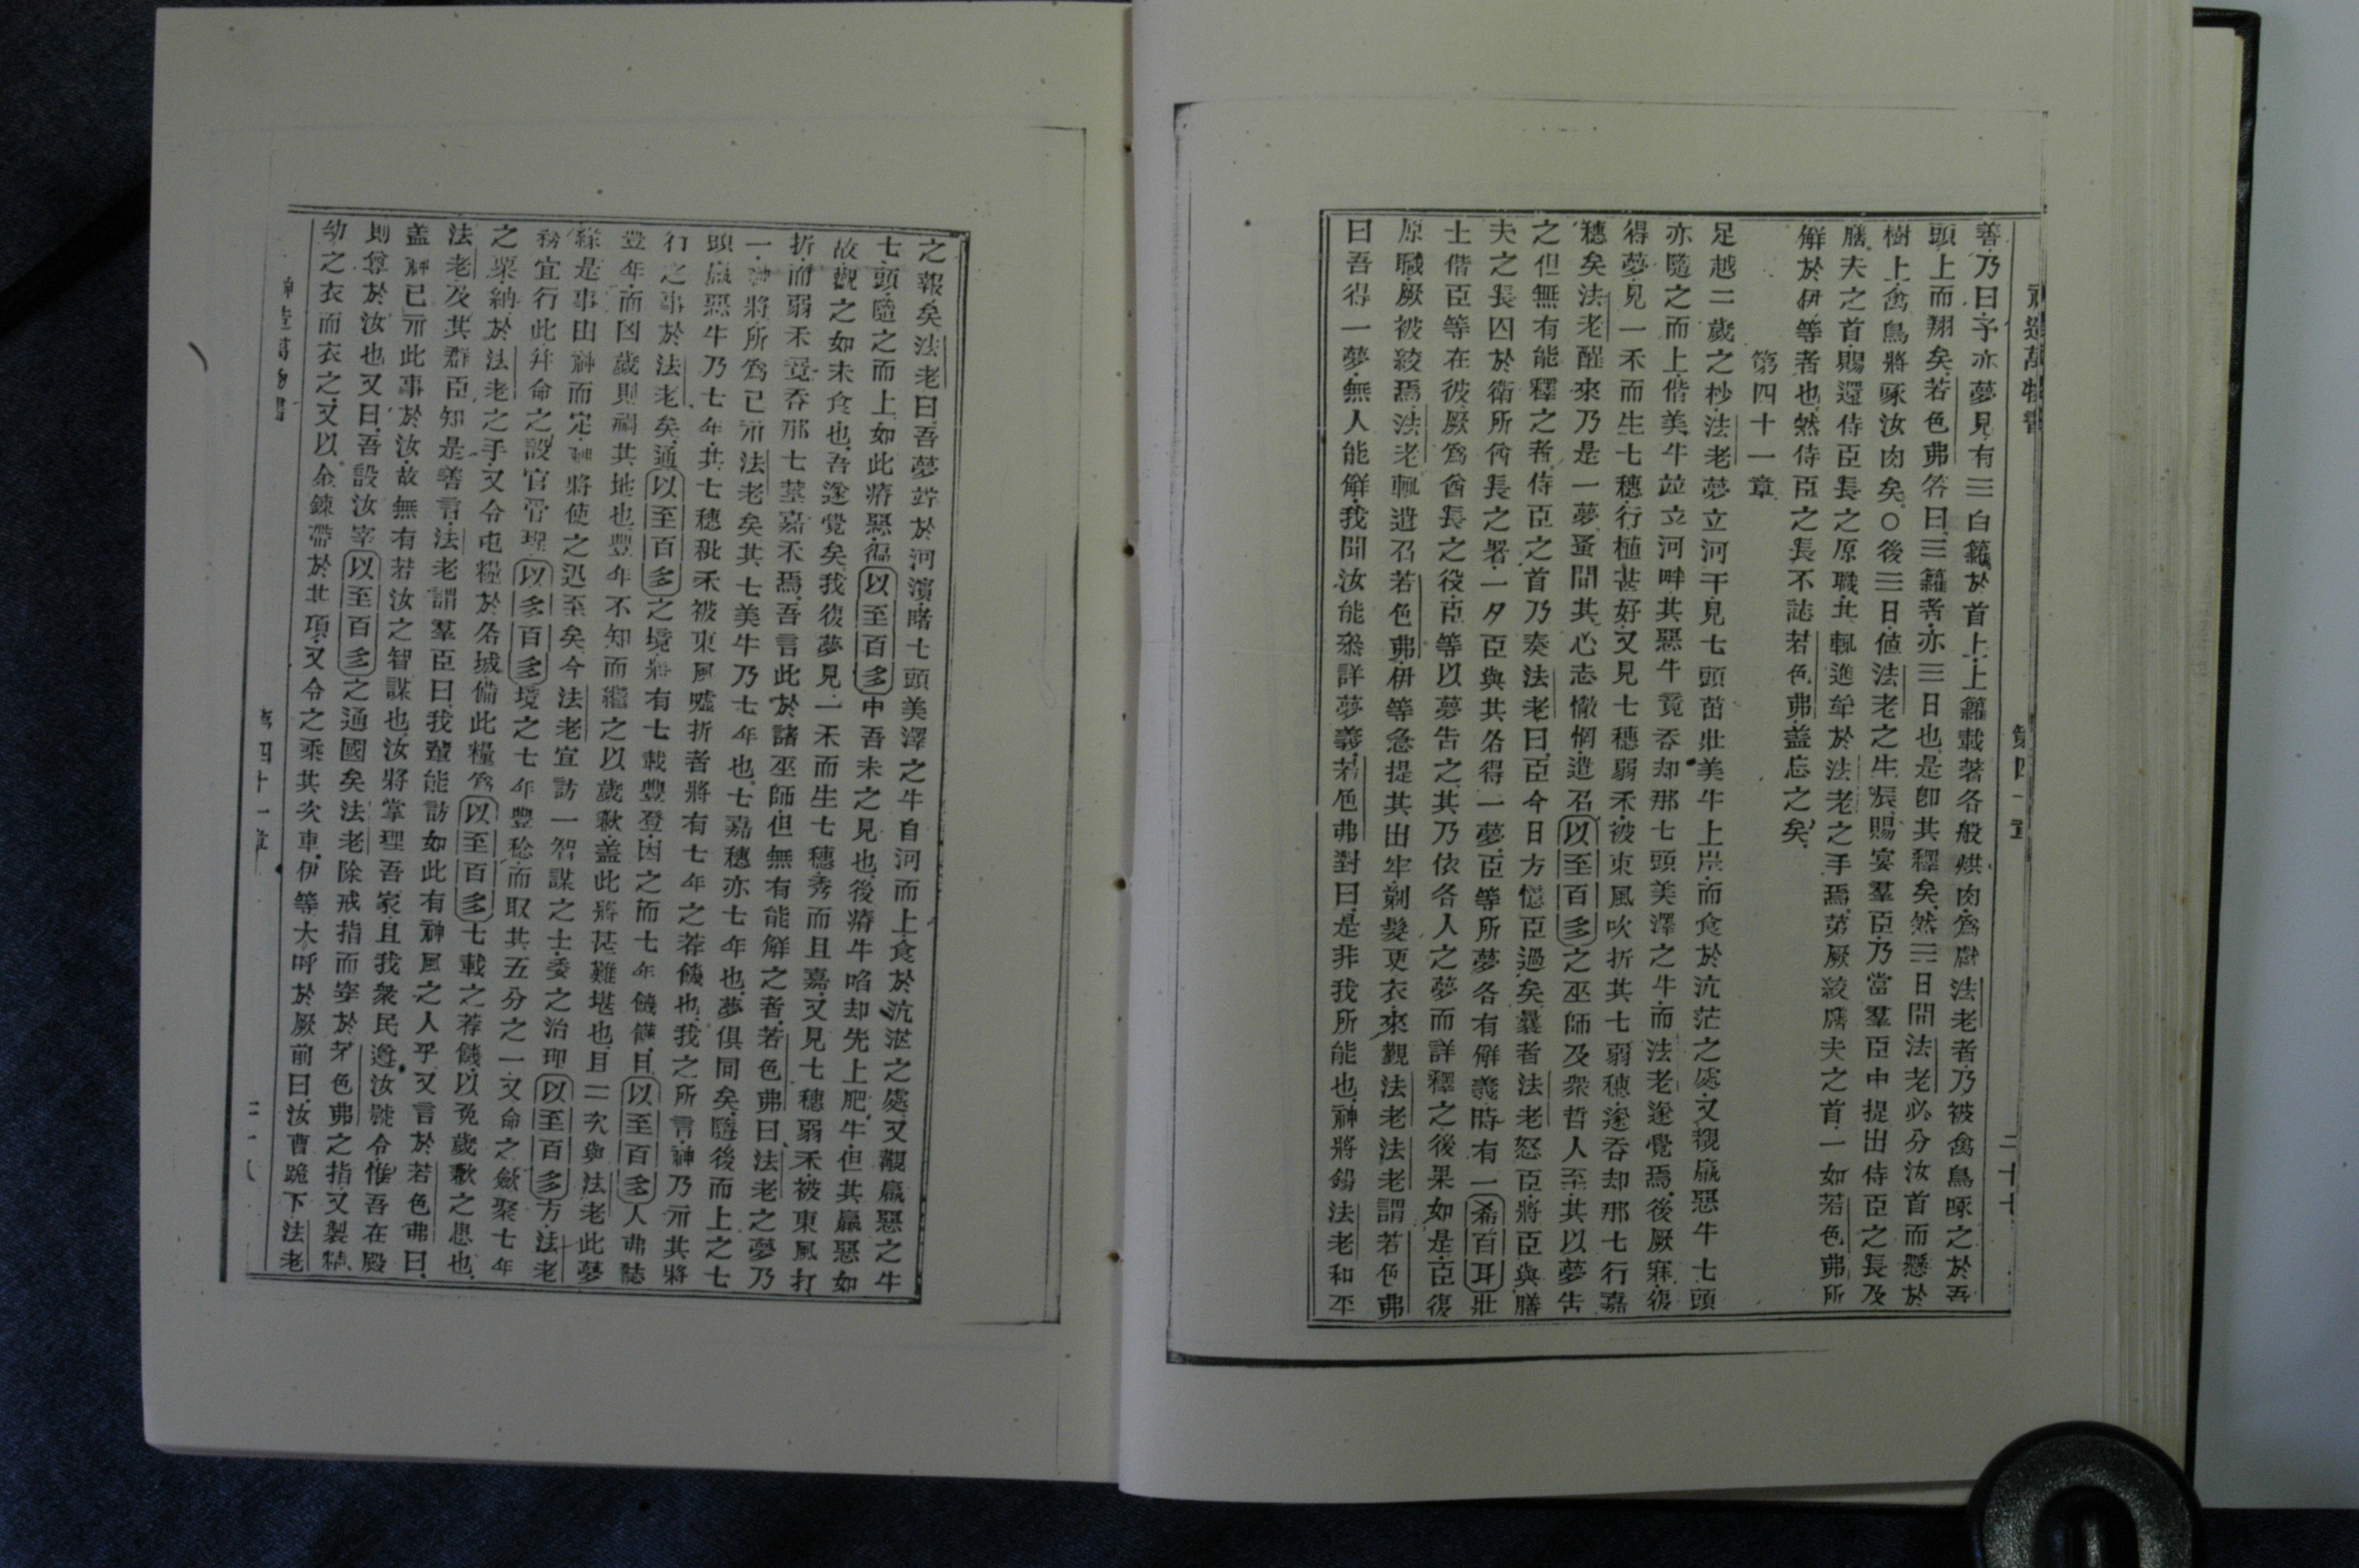 神造萬物書 第四十一章 二十七
善乃曰予亦夢見有三白籮於首上上籮載著各般烘肉爲尉法老者乃被禽鳥啄之於吾
頭上而翔矣若色弗答曰三籮者亦三日也是卽其釋矣然三日間法老必分汝首而懸於
樹上禽鳥將啄汝肉矣〇後三日値法老之生辰賜宴羣臣乃當羣臣中提出侍臣之長及
膳夫之首賜還侍臣長之原職其輒進犖於法老之手焉第厥絞膳夫之首一如若色弗所
解於伊等者也然侍臣之長不誌若色弗盖忘之矣
第四十一章
足越二歲之杪法老夢立河干見七頭苗壯美牛上岸而食於沆茫之處又覩羸惡牛七頭
亦隨之而上偕美牛竝立河畔其惡牛竟吞却那七頭美澤之牛而法老遂覺焉後厥寐復
得夢見一禾而生七穗行植甚好又見七穗弱禾被東風吹折其七弱穗遂吞却那七行嘉
穗矣法老醒來乃是一夢蚤間其心志懺惘遣召以至百多之巫師及衆哲人至其以夢告
之但無有能釋之者侍臣之首乃奏法老曰臣今日方憶臣過矣曩者法老怒臣將臣與膳
夫之長囚於衛所酋長之署一夕臣與其各得一夢臣等所夢各有解義時有一希百耳壯
士偕臣等在彼厥爲酋長之役臣等以夢告之其乃依各人之夢而詳釋之後果如是臣復
原職厥被絞焉法老輒遣召若色弗伊等急提其出牢剃髮更衣來觀法老法老謂若色弗
曰吾得一夢無人能解我聞汝能叅詳夢義若色弗對曰是非我所能也神將錫法老和平
之報矣法老曰吾夢竚於河濱睹七頭美澤之牛自河而上食於沆茫之處又觀羸惡之牛
七頭隨之而上如此瘠惡徧以至百多中吾未之見也後瘠牛啗却先上肥牛但其羸惡如
故觀之如未食也吾遂覺矣我復夢見一禾而生七穗秀而且嘉又見七穗弱禾被東風打
折而弱禾竟吞那七莖嘉禾焉吾言此於諸巫師但無有能解之者若色弗曰法老之夢乃
一神將所爲已示法老矣其七美牛乃七年也七嘉穗亦七年也夢俱同矣隨後而上之七
頭羸惡牛乃七年其七穗秕禾被東風噓折者將有七年之荐饑也我之所言神乃示其將
行之事於法老矣通以至百多之境將有七載豐登因之而七年饑饉且以至百多人弗誌
豐年而凶歲則禍其地也豐年不知而繼之以歲歉盖此將甚難堪也且二次與法老此夢
緣是事由神而定神將使之迅至矣今法老宜訪一智謀之士委之治理以至百多方法老
務宜行此并命之設官管理以至百多境之七年豐稔而取其五分之一又命之斂聚七年
之粟納於法老之手又令屯糧於各城備此糧爲以至百多七載之荐饑以免歲歉之患也
法老及其群臣知是善言法老謂羣臣曰我輩能訪如此有神風之人乎又言於若色弗曰
盖神已示此事於汝故無有若汝之智謀也汝將掌理吾家且我衆民遵汝號令惟吾在殿
則尊於汝也又曰吾設汝宰以至百多之通國矣法老除戒指而穿於若色弗之指又製精
幼之衣而衣之又以金鍊帶於其項又令之乘其次車伊等大呼於厥前曰汝曹跪下法老
神造萬物書 第四十一章 二十八